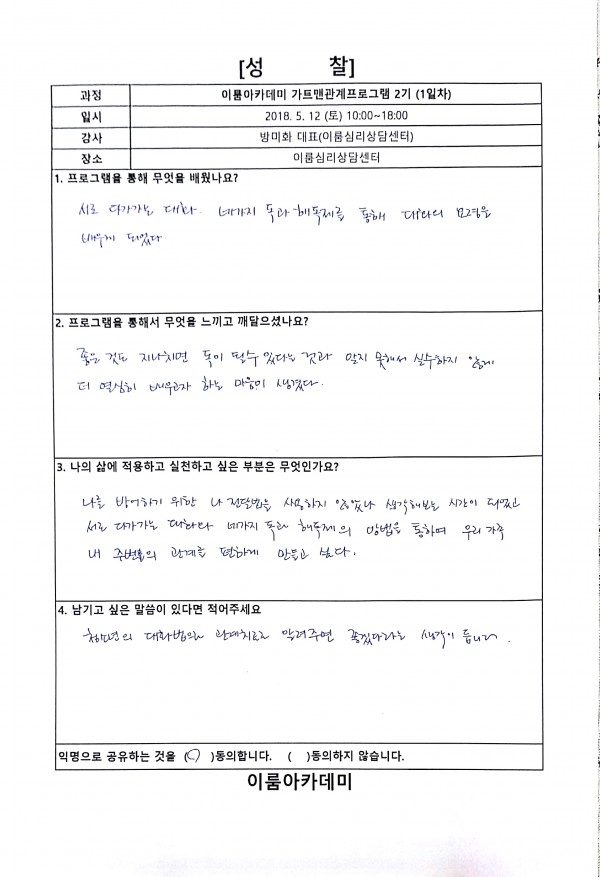 [성 찰]
과정 이룸아카데미 가트맨관계프로그램 2기 (1일차)
일시 2018. 5. 12 (토) 10:00~18:00
강사 방미화 대표(이룸심리상담센터)
장소 이룸심리상담센터
1. 프로그램을 통해 무엇을 배웠나요?
서로 다가가는 대화. 네가지 독과 해독제를 통해 대화의 요령을
배우게 되었다.
2. 프로그램을 통해서 무엇을 느끼고 깨달으셨나요?
좋은 것도 지나치면 독이 될수 있다는 것과 알지 못해서 실수하지 않게
더 열심히 배우고자 하는 마음이 생겼다.
3. 나의 삶에 적용하고 실천하고 싶은 부분은 무엇인가요?
나를 방어하기 위한 나 전달법을 사용하지 않았나 생각해보는 시간이 되었고
서로 다가가는 대화와 네가지 독과 해독제의 방법을 통하여 우리 가족
내 주변들의 관계를 편하게 만들고 싶다.
4. 남기고 싶은 말씀이 있다면 적어주세요
청소년의 대화법으로 관계치료로 알려주면 좋겠다라는 생각이 듭니다.
익명으로 공유하는 것을 (○)동의합니다. ( )동의하지 않습니다.
이룸아카데미